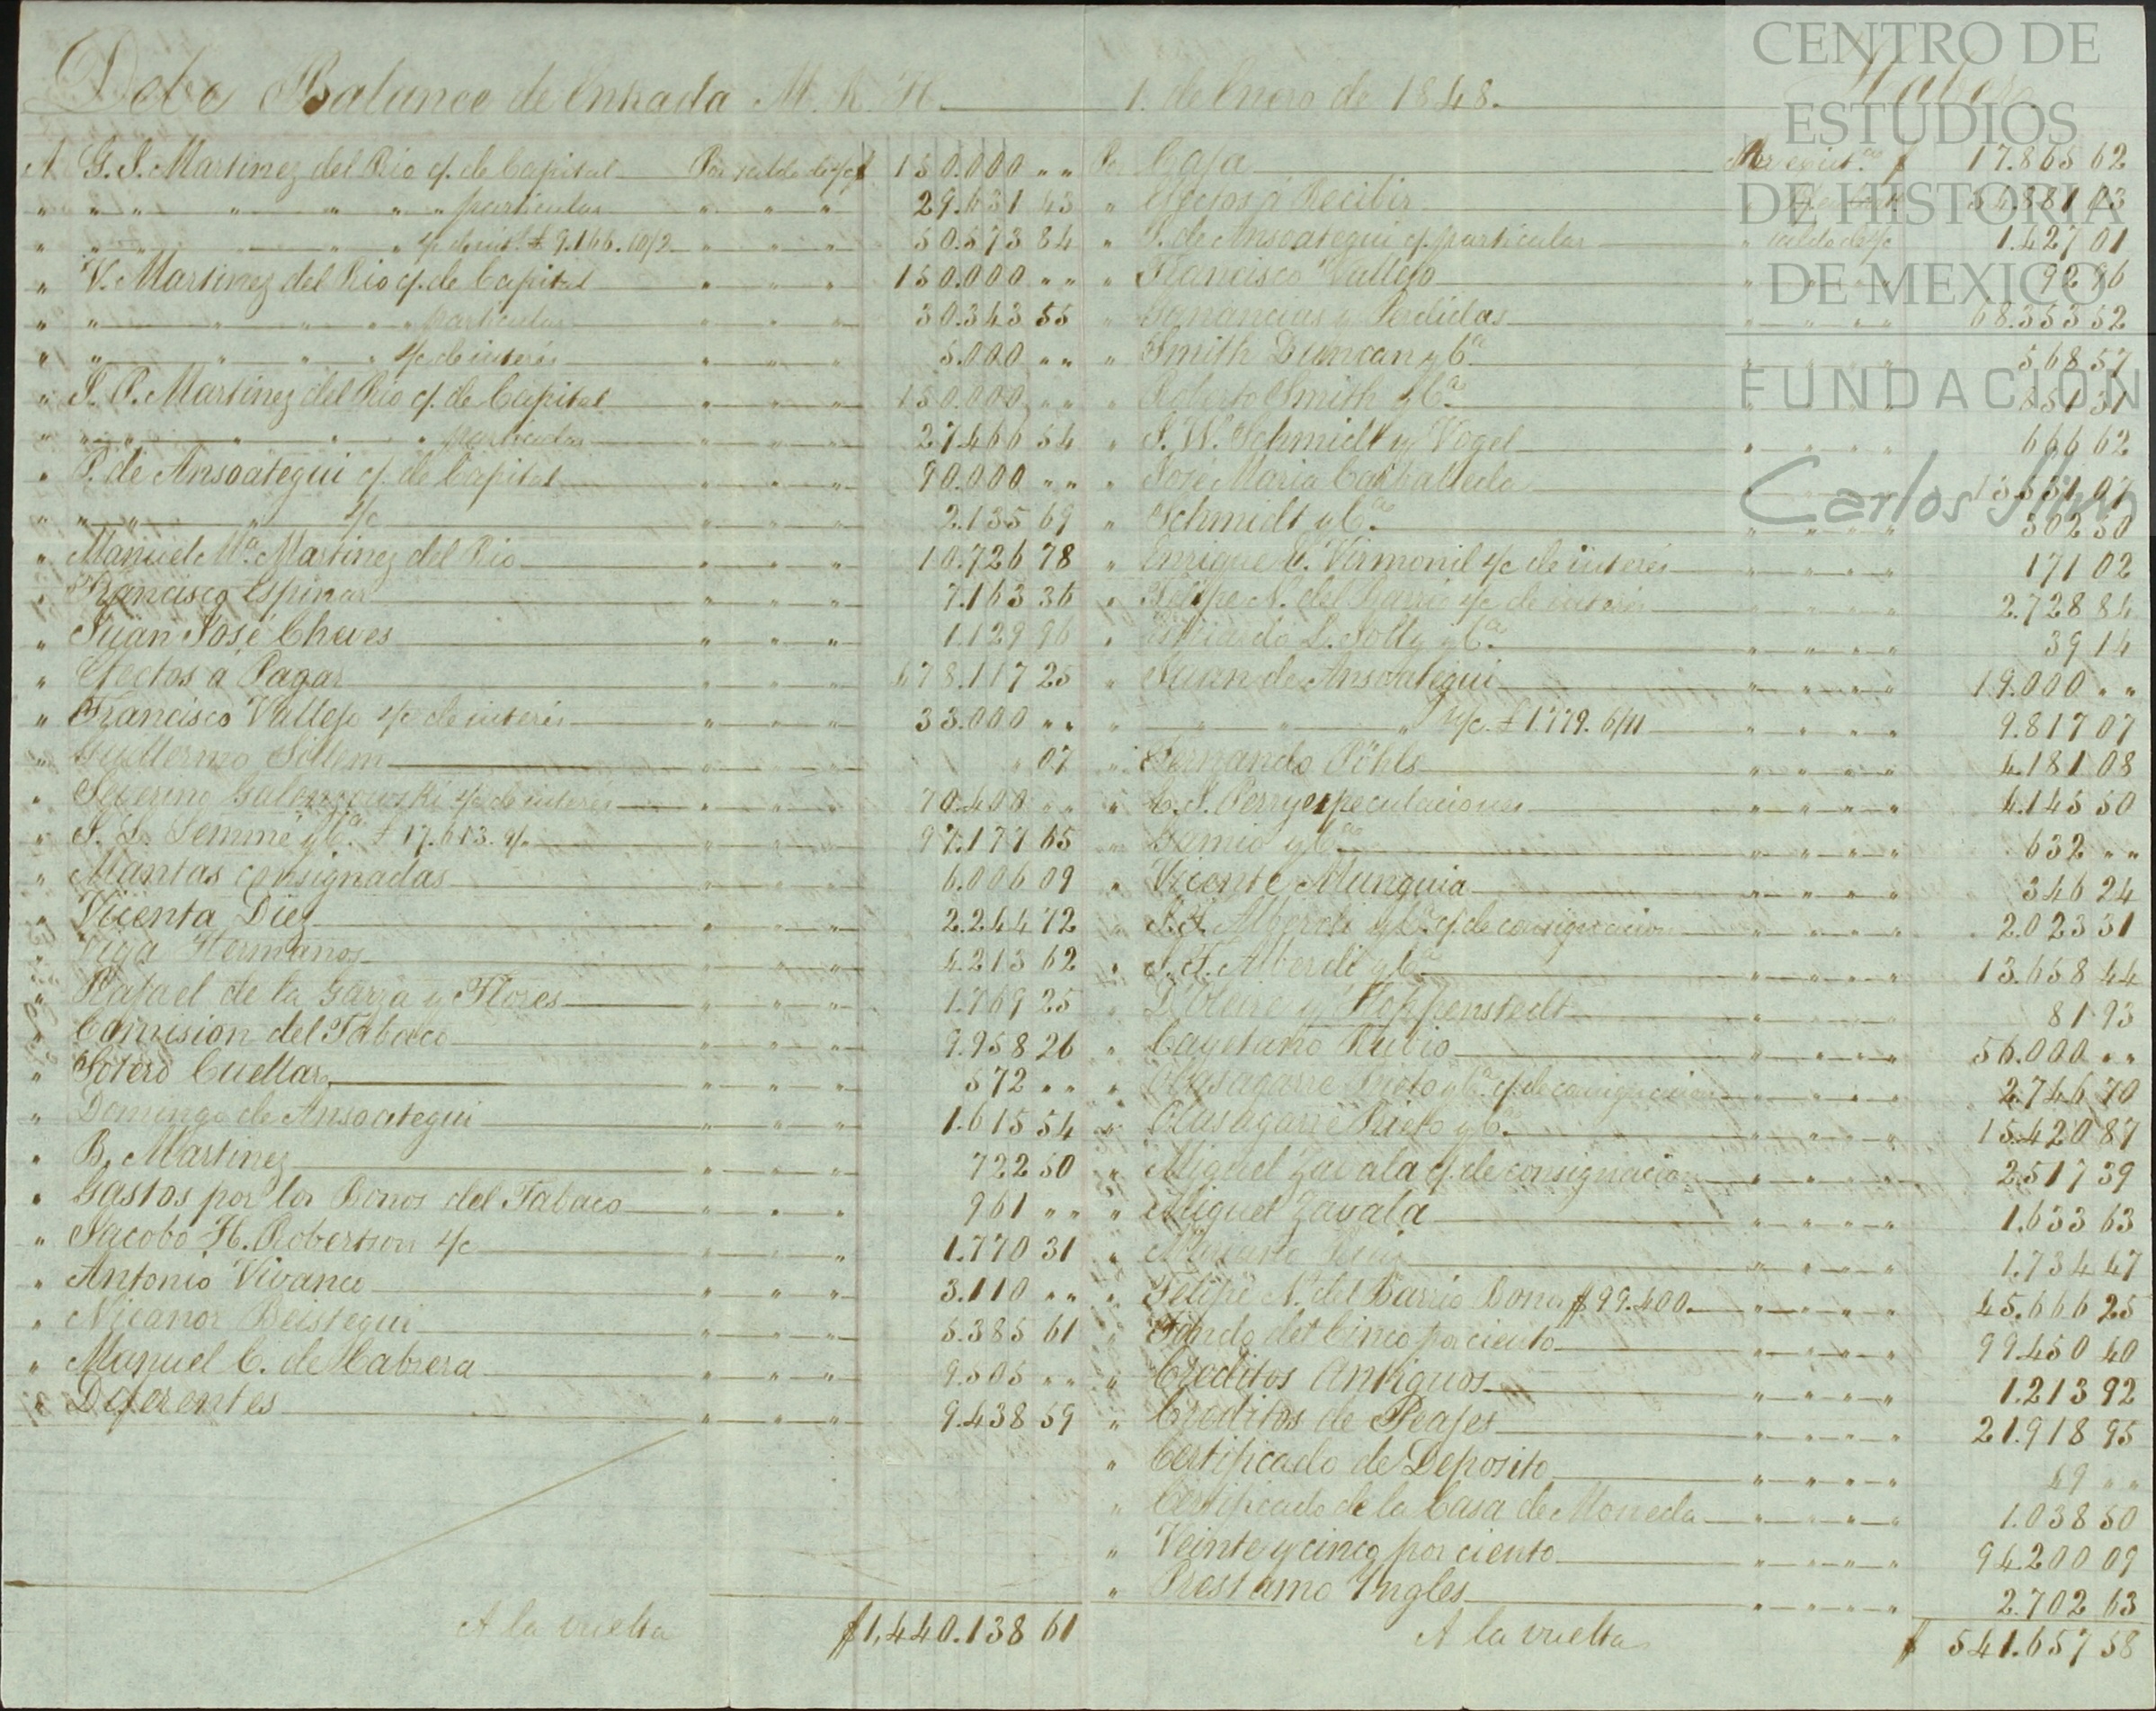 Debe Balance de Entrada M. R. H. 1. de Enero de 1848. Haber
A G. J. Martinez del Rio c/. de Capital Por saldo de s/c $ 150.000 " "
" " " " " " " particular " " " 29.631 43
" " " " " " s/c de int. £ 9.166.10/2 " " " 50.573 84
" V. Martinez del Rio c/. de Capital " " " 150.000 " "
" " " " " " particular " " " 30.343 55
" " " " " s/c de interés " " " 5.000 " "
" J. P. Martinez del Rio c/. de Capital " " " 150.000 " "
" " " " " " " particular " " " 27.466 54
" P. de Ansoategui c/. de Capital " " " 90.000 " "
" " " " " s/c " " " 2.135 69
" Manuel Mª. Martinez del Rio " " " 10.726 78
" Francisco Espinar " " " 7.163 36
" Juan José Chaves " " " 1.129 96
" Efectos a Pagar " " " 678.117 25
" Francisco Vallejo s/c de interés " " " 33.000 " "
" Guillermo Sillem " " " " 07
" Severino Galenzowski s/c de interés " " " 70.400 " "
" J. L. Lemmé y Cª. £ 17.613. " " " 97.177 65
" Mantas consignadas " " " 6.006 09
" Vicenta Diez " " " 2.264 72
" Vega Hermanos " " " 4.213 62
" Rafael de la Garza y Flores " " " 1.769 25
" Comision del Tabaco " " " 9.958 26
" Sotero Cuellar " " " 572 " "
" Domingo de Ansoategui " " " 1.615 54
" B. Martinez " " " 722 50
" Gastos por los Bonos del Tabaco " " " 961 " "
" Jacobo H. Robertson s/c " " " 1.770 31
" Antonio Vivanco " " " 3.110 " "
" Nicanor Beistegui " " " 5.385 61
" Manuel C. de Cabrera " " " 9.505 " "
" Diferentes " " " 9.438 59
A la vuelta $1,440.138 61
Por Caja Por exist.ª $ 17.865 62
" Efectos á Recibir " 54.881 03
" P. de Ansoategui c/. particular " saldo de s/c 1.427 01
" Francisco Vallejo " " " " 92 96
" Ganancias y Perdidas " " " " 68.353 52
" Smith Duncan y Cª " " " " 568 57
" Roberto Smith y Cª " " " " 351 31
" J. W. Schmidt y Vogel " " " " 666 62
" José Maria Carballeda " " " " 13.531 07
" Schmidt y Cª " " " " 302 50
" Enrique E. Virmond s/c de interés " " " " 171 02
" Felipe N. del Barrio s/c de interés " " " " 2.728 84
" L. Jolly y Cª " " " " 39 14
" Juan de Ansoategui " " " " 19.000 " "
" " " " " s/c. £ 1.779. 6/11 " " " " 9.817 07
" Fernando Pöhls " " " " 4.181 08
" E. J. Perry especulaciones " " " " 4.145 50
" Gamio y Cª " " " " 632 " "
" Vicente Munguia " " " " 346 24
" J. F. Alberdi y Cª c/. de consignacion " " " " 2.023 31
" J. F. Alberdi y Cª " " " " 13.658 44
" D'Oleire y Hoppenstedt " " " " 81 93
" Cayetano Rubio " " " " 56.000 " "
" Olasagarre Prieto y Cª. c/. de consignacion " " " " 2.746 70
" Olasagarre Prieto y Cª. " " " " 15.420 87
" Miguel Zavala c/. de consignacion " " " " 2.517 39
" Miguel Zavala " " " " 1.633 63
" Mariano " " " " 1.734 47
" Felipe N. del Barrio Bonos $99.400. " " " " 45.666 25
" Fondo del Cinco por ciento " " " " 99.450 40
" Creditos Antiguos " " " " 1.213 92
" Creditos de Peajes " " " " 21.918 95
" Certificado de Deposito " " " " 49 " "
" Certificado de la Casa de Moneda " " " " 1.038 50
" Veinte y cinco por ciento " " " " 94.200 09
" Prestamo Yngles " " " " 2.702 63
A la vuelta $ 541.657 58
CENTRO DE
ESTUDIOS
DE HISTORIA
DE MEXICO
FUNDACIÓN
Carlos Slim